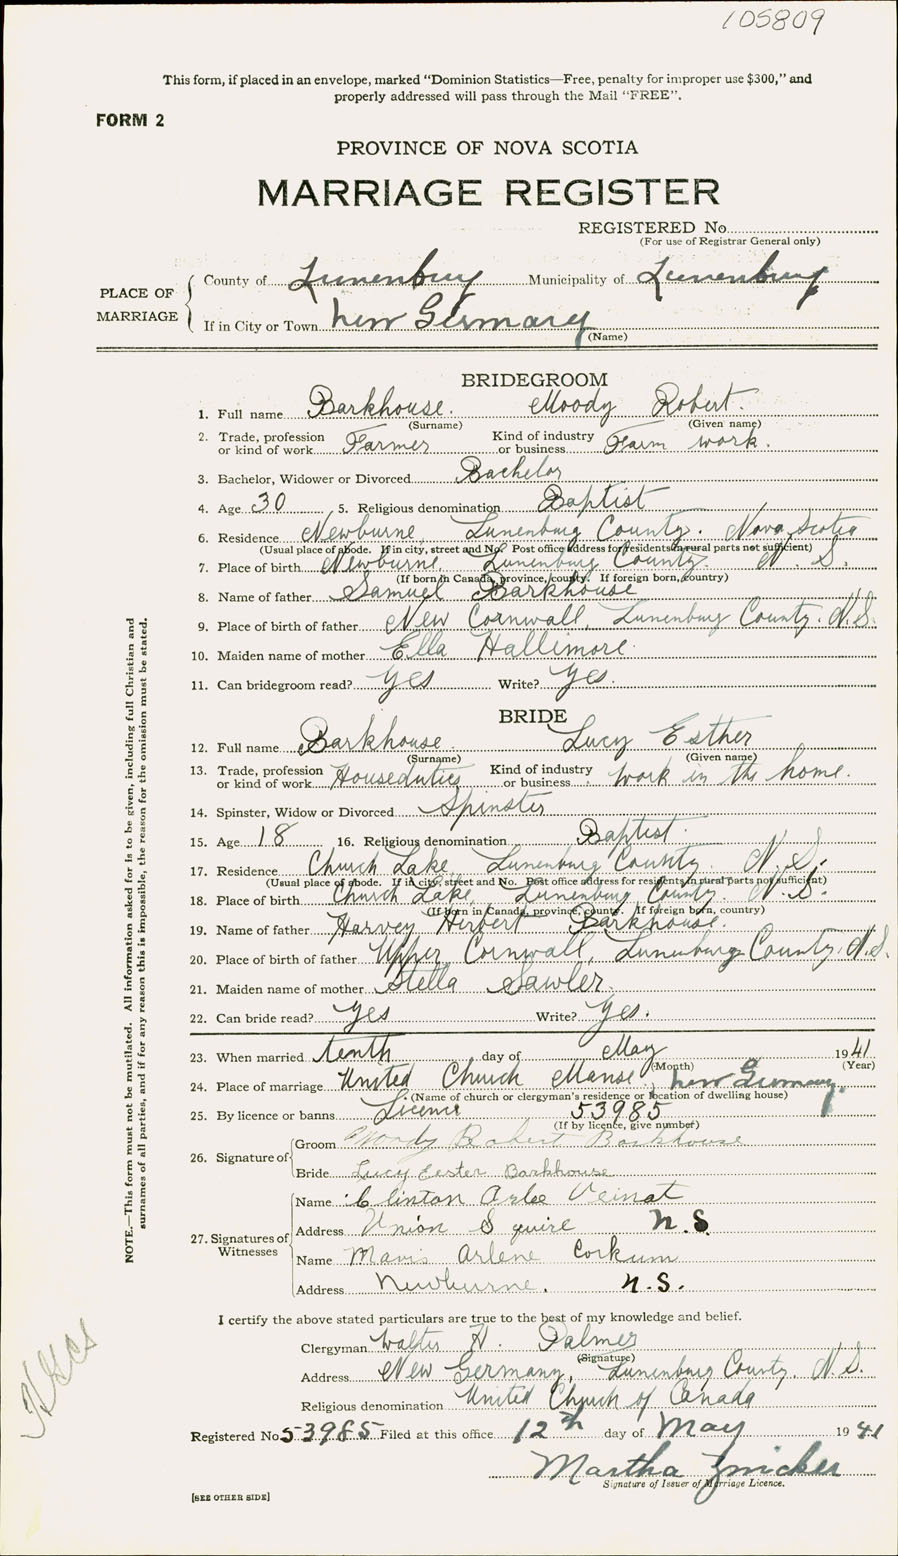 105809
This form, if placed in an envelope, marked “Dominion Statistics—Free, penalty for improper use $300,” and
properly addressed will pass through the Mail “FREE”.
FORM 2
PROVINCE OF NOVA SCOTIA
MARRIAGE REGISTER
REGISTERED No.
(For use of Registrar General only)
PLACE OF MARRIAGE
County of Lunenburg Municipality of Lunenburg
If in City or Town New Germany
(Name)
BRIDEGROOM
1. Full name Barkhouse. Moody Robert.
(Surname) (Given name)
2. Trade, profession or kind of work Farmer Kind of industry or business Farm work.
3. Bachelor, Widower or Divorced Bachelor
4. Age 30 5. Religious denomination Baptist
6. Residence Newburne, Lunenburg County. Nova Scotia
(Usual place of abode. If in city, street and No. Post office address for residents in rural parts not sufficient)
7. Place of birth Newburne, Lunenburg County. N. S.
(If born in Canada, province, county. If foreign born, country)
8. Name of father Samuel Barkhouse
9. Place of birth of father New Cornwall, Lunenburg County. N.S.
10. Maiden name of mother Ella Hallimore.
11. Can bridegroom read? Yes Write? Yes.
BRIDE
12. Full name Barkhouse. Lucy Esther
(Surname) (Given name)
13. Trade, profession or kind of work Houseduties Kind of industry or business work in the home.
14. Spinster, Widow or Divorced Spinster
15. Age 18 16. Religious denomination Baptist.
17. Residence Church Lake, Lunenburg County. N. S.
(Usual place of abode. If in city, street and No. Post office address for residents in rural parts not sufficient)
18. Place of birth Church Lake, Lunenburg County. N. S.
(If born in Canada, province, county. If foreign born, country)
19. Name of father Harvey Herbert Barkhouse.
20. Place of birth of father Upper Cornwall, Lunenburg County. N.S.
21. Maiden name of mother Stella Sawler.
22. Can bride read? Yes Write? Yes.
23. When married tenth day of May 1941
(Month) (Year)
24. Place of marriage United Church Manse, New Germany.
(Name of church or clergyman's residence or location of dwelling house)
25. By licence or banns Licence 53985
(If by licence, give number)
26. Signature of
Groom Moody Robert Barkhouse
Bride Lucy Eester Barkhouse
27. Signatures of Witnesses
Name Clinton Arlee Veinot
Address Union Squire N.S.
Name Mavis Arlene Corkum
Address Newburne, N.S.
I certify the above stated particulars are true to the best of my knowledge and belief.
Clergyman Walter H. Palmer
(Signature)
Address New Germany, Lunenburg County. N. S.
Religious denomination United Church of Canada
Registered No. 53985 Filed at this office 12th day of May 1941
Martha Zwicker
Signature of Issuer of Marriage Licence.
[SEE OTHER SIDE]
NOTE.—This form must not be mutilated. All information asked for is to be given, including full Christian and
surnames of all parties, and if for any reason this is impossible, the reason for the omission must be stated.